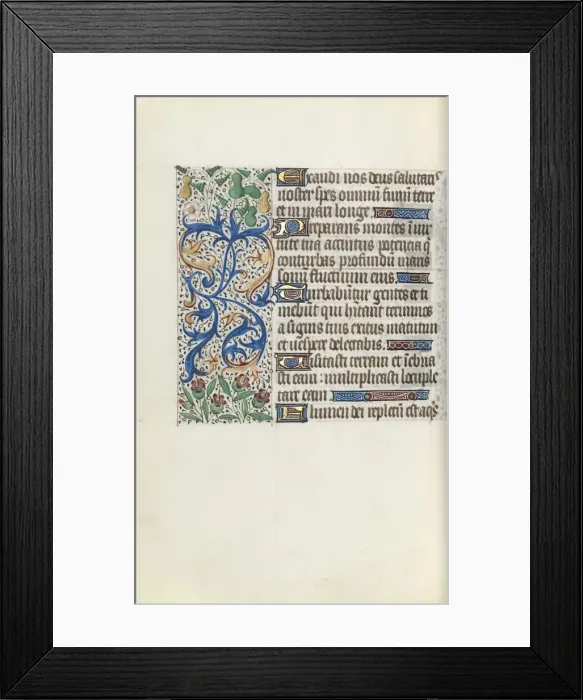 Exaudi nos deus salutaris
noster spes omniũ finiũ terre
et in mari longe
Preparans montes ĩ vir
tute tua accintus potencia q̃
conturbas profundũ maris
sonũ fluctuum eius
Turbabũtur gentes et ti
mebũt qui hĩtant terminos
a signis tuis exitus matutini
et vespere delectabis
Visitasti terram et ĩebria
sti eam : multiplicasti locuple
tare eam
Flumen dei repletũ est aq̃s